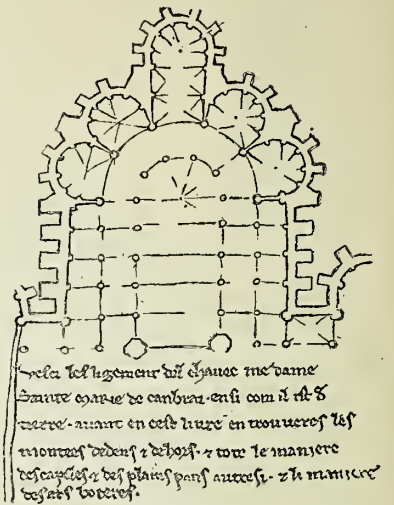 vesci lesligement del chavec me dame
Sainte marie de canbrai . ensi com il ist d
tierre . avant en cest livre en trouveres les
montees dedens & dehors . & tote le maniere
des capeles & des plains pans autresi . & li maniere
des ars boteres .